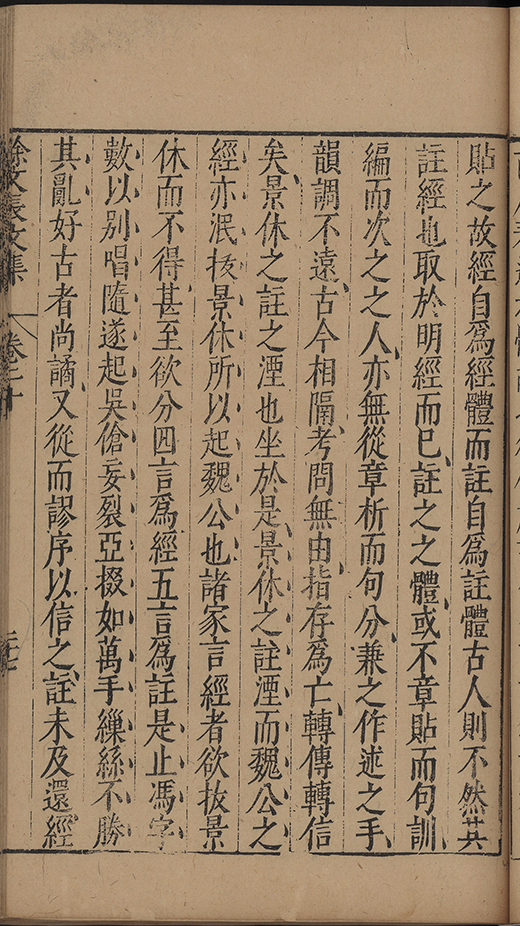 貼之故經自爲經體而註自爲註體古人則不然其
註經也取於明經而已註之之體或不章貼而句訓
編而次之之人亦無從章析而句分兼之作述之手
韻調不遠古今相隔考問無由指存爲亡轉傳轉信
矣景休之註之湮也坐於是景休之註湮而魏公之
經亦泯扳景休所以起魏公也諸家言經者欲扳景
休而不得甚至欲分四言爲經五言爲註是止馮字
數以别唱隨遂起吳傖妄裂亞掇如萬手繅絲不勝
其亂好古者尚譎又從而謬序以信之註未及還經
徐文長文集 卷二十